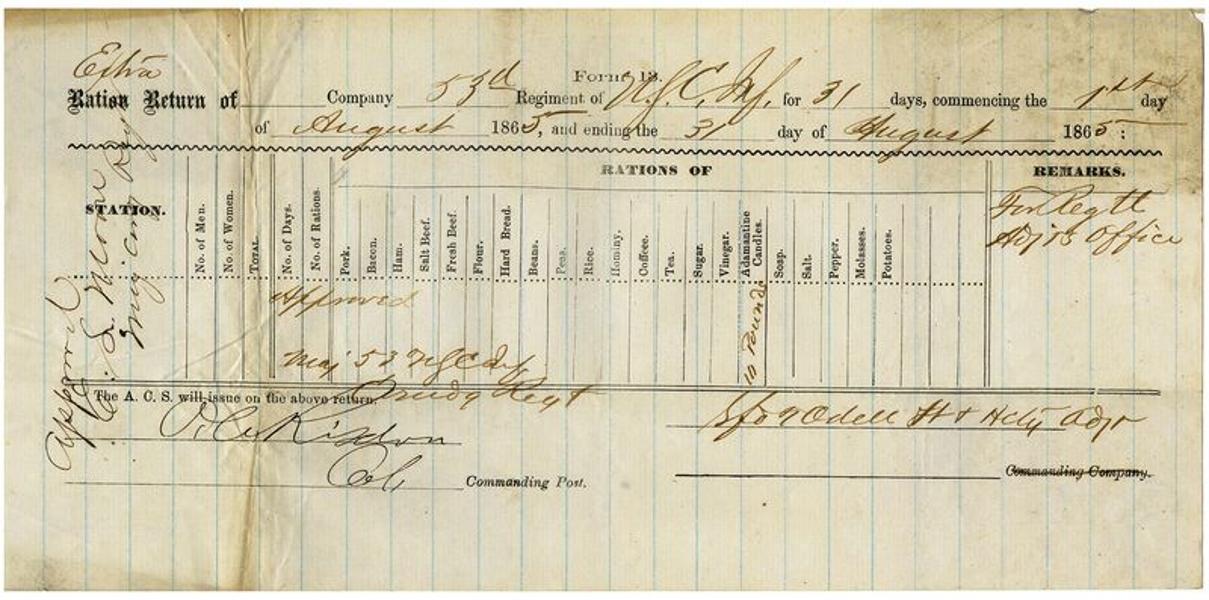 Form 13.
Extra
Ration Return of Company 53rd Regiment of U.S.C. Inf. for 31 days, commencing the 1st day
of August 1865, and ending the 31 day of August 1865 :
STATION.
No. of Men.
No. of Women.
TOTAL.
No. of Days.
No. of Rations.
RATIONS OF
Pork.
Bacon.
Ham.
Salt Beef.
Fresh Beef.
Flour.
Hard Bread.
Beans.
Peas.
Rice.
Hominy.
Coffee.
Tea.
Sugar.
Vinegar.
Adamantine Candles.
Soap.
Salt.
Pepper.
Molasses.
Potatoes.
REMARKS.
For Regtl
Adjts Office
10 Pounds
Approved
Maj 53 U S C Inf
Comdg Regt
Approved
Maj Comdg Regt
The A. C. S. will issue on the above return.
Col
Commanding Post.
Odell Lt & Actg Adjt
Commanding Company.